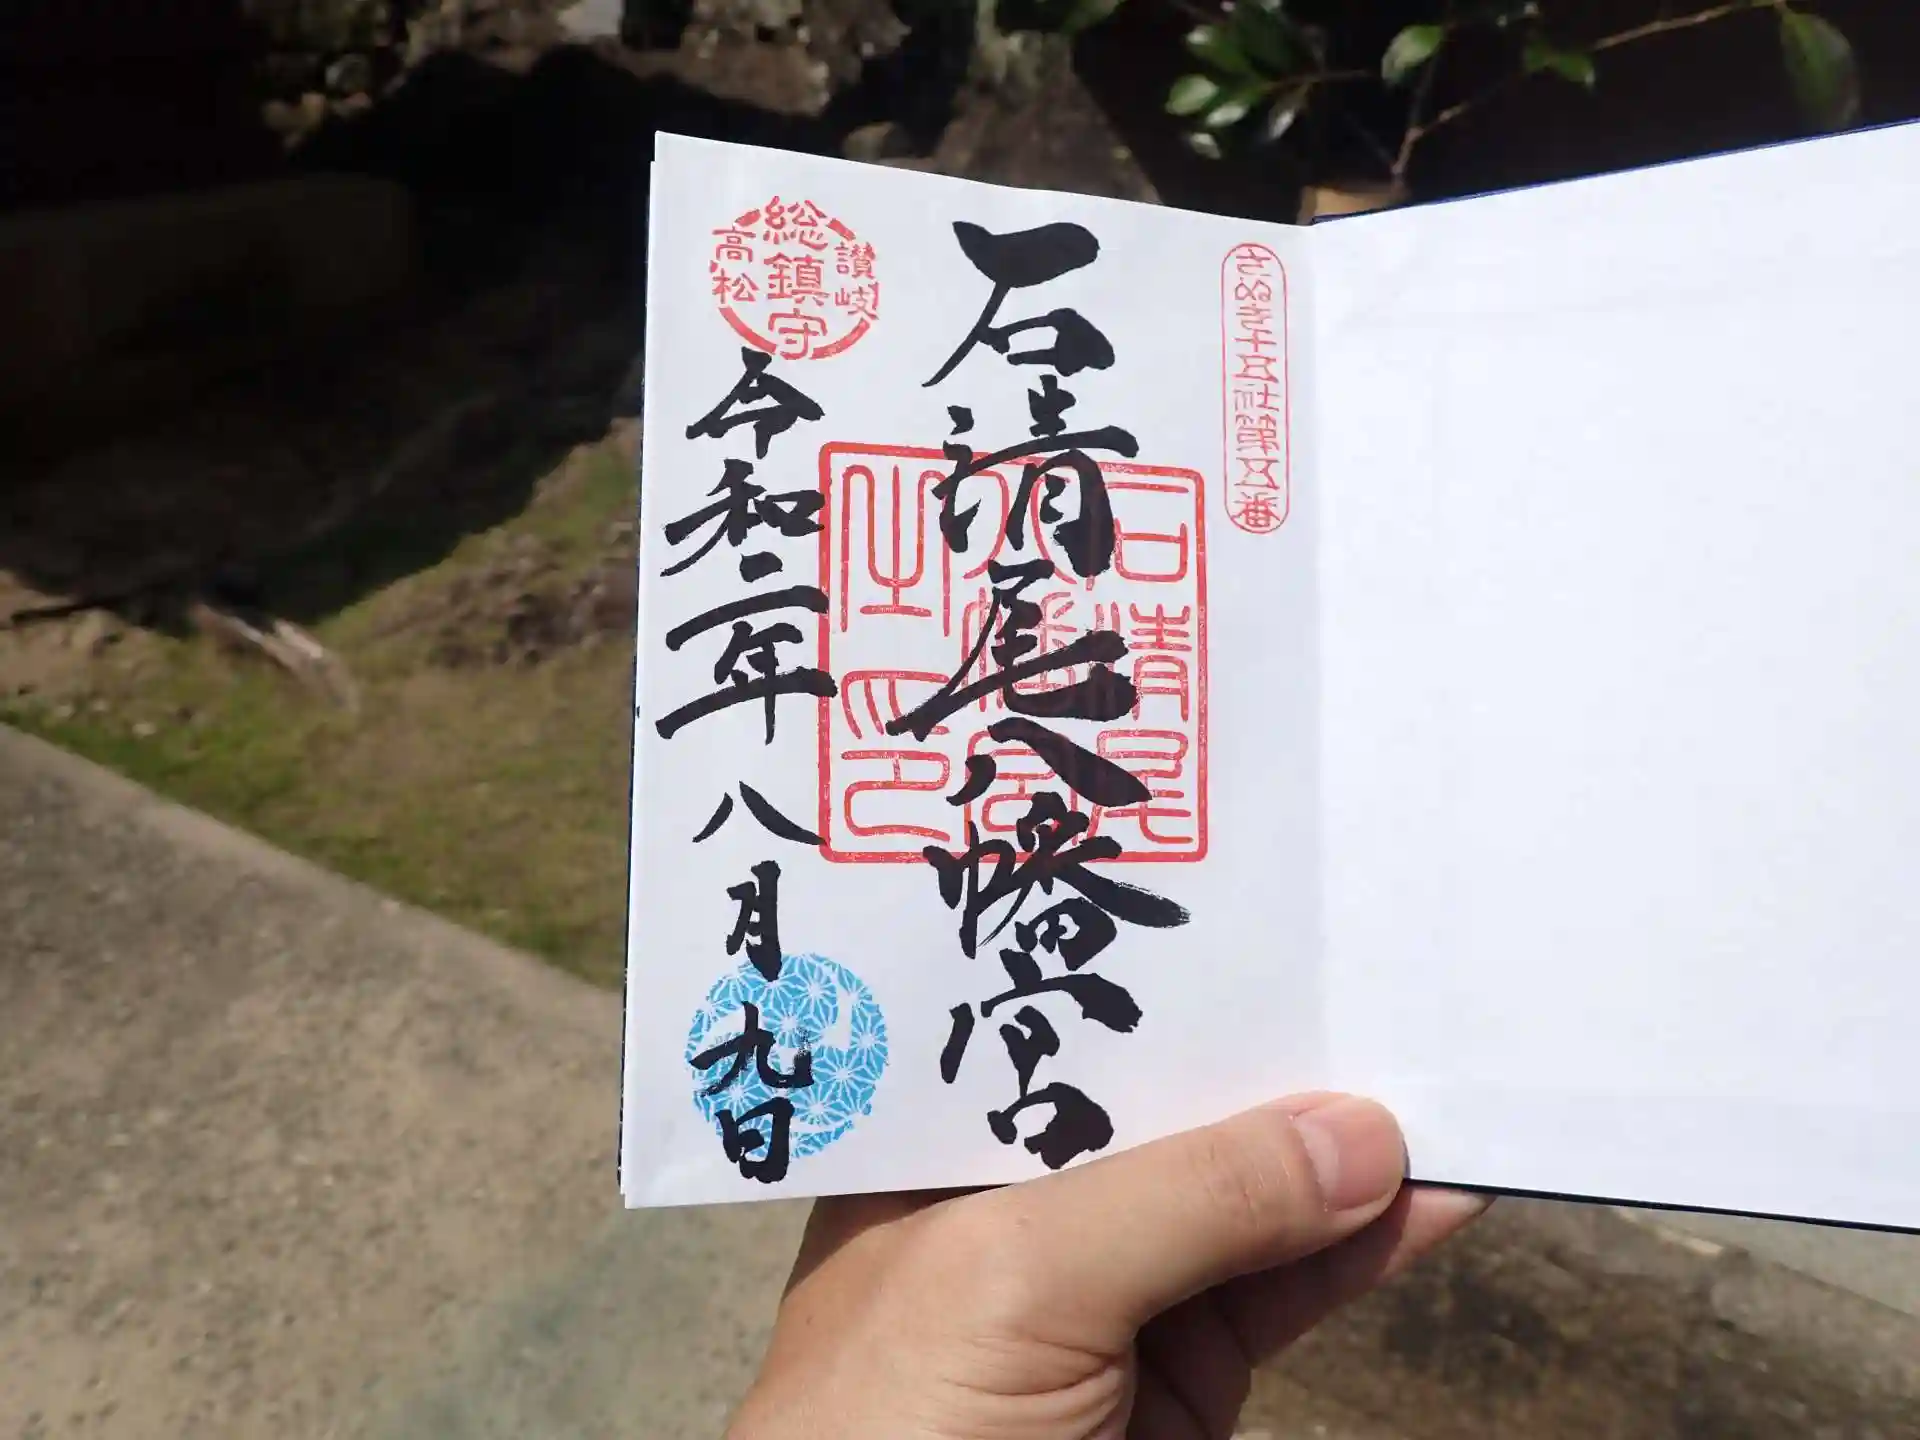 さぬき十五社第五番
石清尾八幡宮
石清尾
八幡宮
之印
讃岐
総鎮守
高松
令和二年八月九日